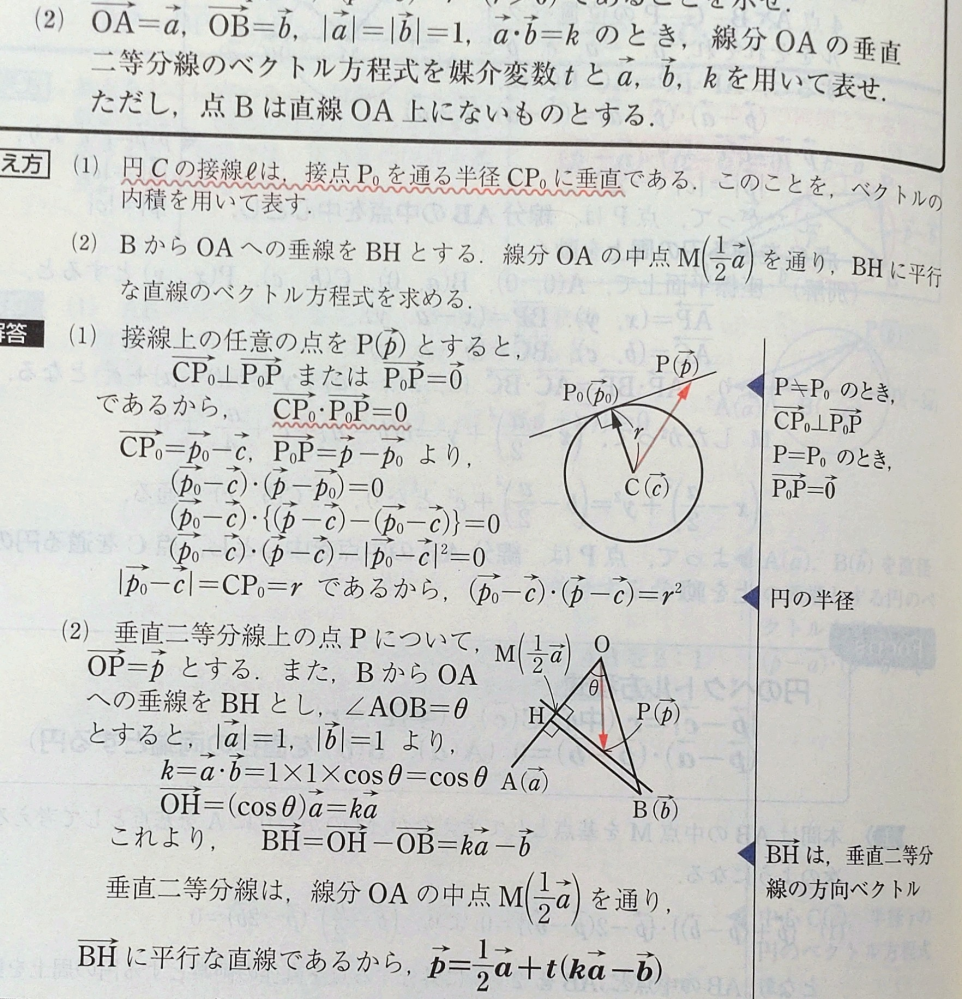 (2) OA=a, OB=b, |a|=|b|=1, a·b=k のとき, 線分 OA の垂直
二等分線のベクトル方程式を媒介変数 t と a, b, k を用いて表せ.
ただし, 点 B は直線 OA 上にないものとする.
え方 (1) 円 C の接線ℓは, 接点 P₀ を通る半径 CP₀ に垂直である. このことを, ベクトルの
内積を用いて表す.
(2) B から OA への垂線を BH とする. 線分 OA の中点 M(1/2 a) を通り, BH に平行
な直線のベクトル方程式を求める.
解答 (1) 接線上の任意の点を P(p) とすると,
CP₀⊥P₀P または P₀P=0
であるから, CP₀·P₀P=0
CP₀=p₀−c, P₀P=p−p₀ より,
(p₀−c)·(p−p₀)=0
(p₀−c)·{(p−c)−(p₀−c)}=0
(p₀−c)·(p−c)−|p₀−c|²=0
|p₀−c|=CP₀=r であるから, (p₀−c)·(p−c)=r²
P(p)
P₀(p₀)
r
C(c)
P≠P₀ のとき,
CP₀⊥P₀P
P=P₀ のとき,
P₀P=0
円の半径
(2) 垂直二等分線上の点 P について,
OP=p とする. また, B から OA
への垂線を BH とし, ∠AOB=θ
とすると, |a|=1, |b|=1 より,
k=a·b=1×1×cosθ=cosθ
OH=(cosθ)a=ka
これより, BH=OH−OB=ka−b
M(1/2 a)
O
θ
H
P(p)
A(a)
B(b)
垂直二等分線は, 線分 OA の中点 M(1/2 a) を通り,
BH に平行な直線であるから, p=1/2 a+t(ka−b)
BH は, 垂直二等分
線の方向ベクトル